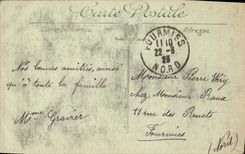 Carte Postale
Correspondance
Adresse
FOURMIES
11 10
22-5
26
NORD
Nos bonnes amitiés, ainsi
qu'à toute la famille
Mme Gravier
Monsieur Pierre
chez Monsieur
18 rue des Rouets
Fourmies
(Nord)